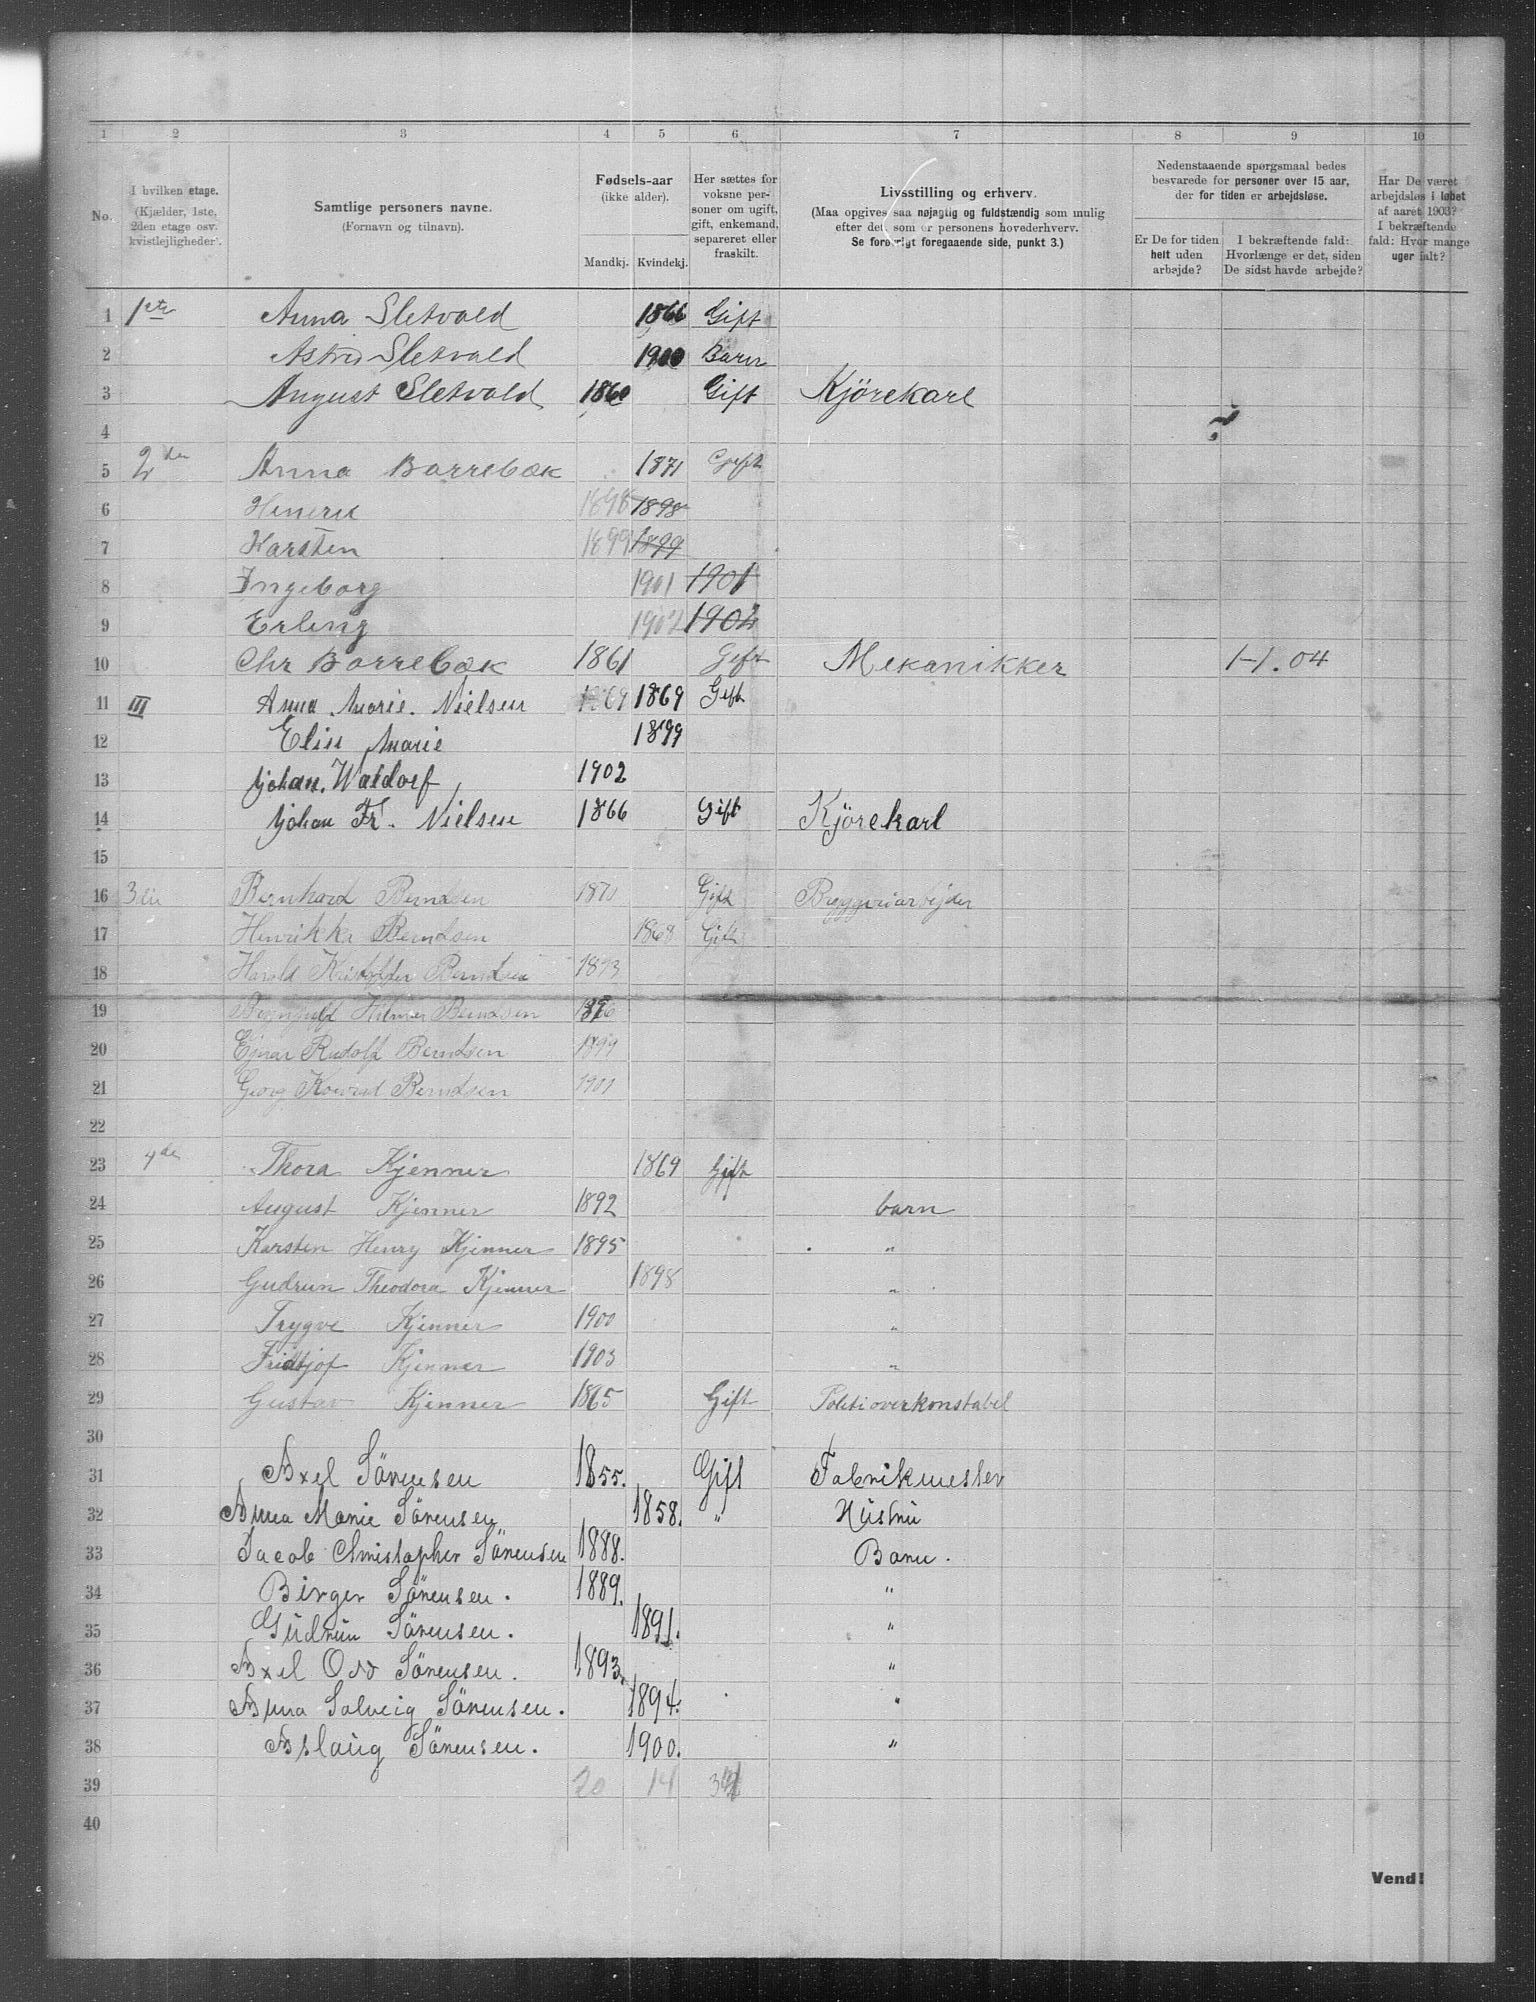 1 2 3 4 5 6 7 8 9 10
No.
I hvilken etage.
(Kjælder, 1ste, 2den etage osv. kvistlejligheder).
Samtlige personers navne.
(Fornavn og tilnavn).
Fødsels-aar
(ikke alder).
Mandkj. Kvindekj.
Her sættes for voksne personer om ugift, gift, enkemand, separeret eller fraskilt.
Livsstilling og erhverv.
(Maa opgives saa nøjagtig og fuldstændig som mulig
efter det, som er personens hovederhverv.
Se forøvrigt foregaaende side, punkt 3.)
Nedenstaaende spørgsmaal bedes
besvarede for personer over 15 aar,
der for tiden er arbejdsløse.
Er De for tiden helt uden arbejde?
I bekræftende fald: Hvorlænge er det, siden De sidst havde arbejde?
Har De været arbejdsløs i løbet af aaret 1903? I bekræftende fald: Hvor mange uger ialt?
1 1ste Anna Sletvold 1866 Gift
2 Astrid Sletvold 1900 Barn
3 August Sletvold 1860 Gift Kjörekarl
4
5 2den Anna Borrebæk 1871 Gift
6 Henerik 1898 1898
7 Karsten 1899 1899
8 Ingeborg 1901 1901
9 Erling 1902 1902
10 Chr Borrebæk 1861 Gift Mekanikker 1-1. 04
11 III Anna Marie. Nielsen 1869 1869 Gift
12 Elin Marie 1899
13 Johan. Waldorf 1902
14 Johan Fr. Nielsen 1866 Gift Kjörekarl
15
16 3die Bernhard Berndsen 1870 Gift Bryggeriarbejder
17 Henrikke Berndsen 1868 Gift
18 Harald Kristoffer Berndsen 1893
19 Hilmer Berndsen
20 Ejnar Rudolf Berndsen 1899
21 Georg Konrad Berndsen 1901
22
23 4de Thora Kjenner 1869 Gift
24 August Kjenner 1892 barn
25 Karsten Henry Kjenner 1895 "
26 Gudrun Theodora Kjenner 1898 "
27 Trygve Kjenner 1900 "
28 Fridtjof Kjenner 1903 "
29 Gustav Kjenner 1865 Gift Politioverkonstabel
30
31 Axel Sörensen 1855. Gift Fabrikmester
32 Anna Marie Sörensen 1858. " Hustru
33 Jacob Christopher Sörensen 1888. Barn.
34 Birger Sörensen. 1889. "
35 Gudrun Sörensen. 1891. "
36 Axel Odd Sörensen. 1893. "
37 Anna Solveig Sörensen. 1894. "
38 Aslaug Sörensen. 1900. "
39 20 14
40
Vend!